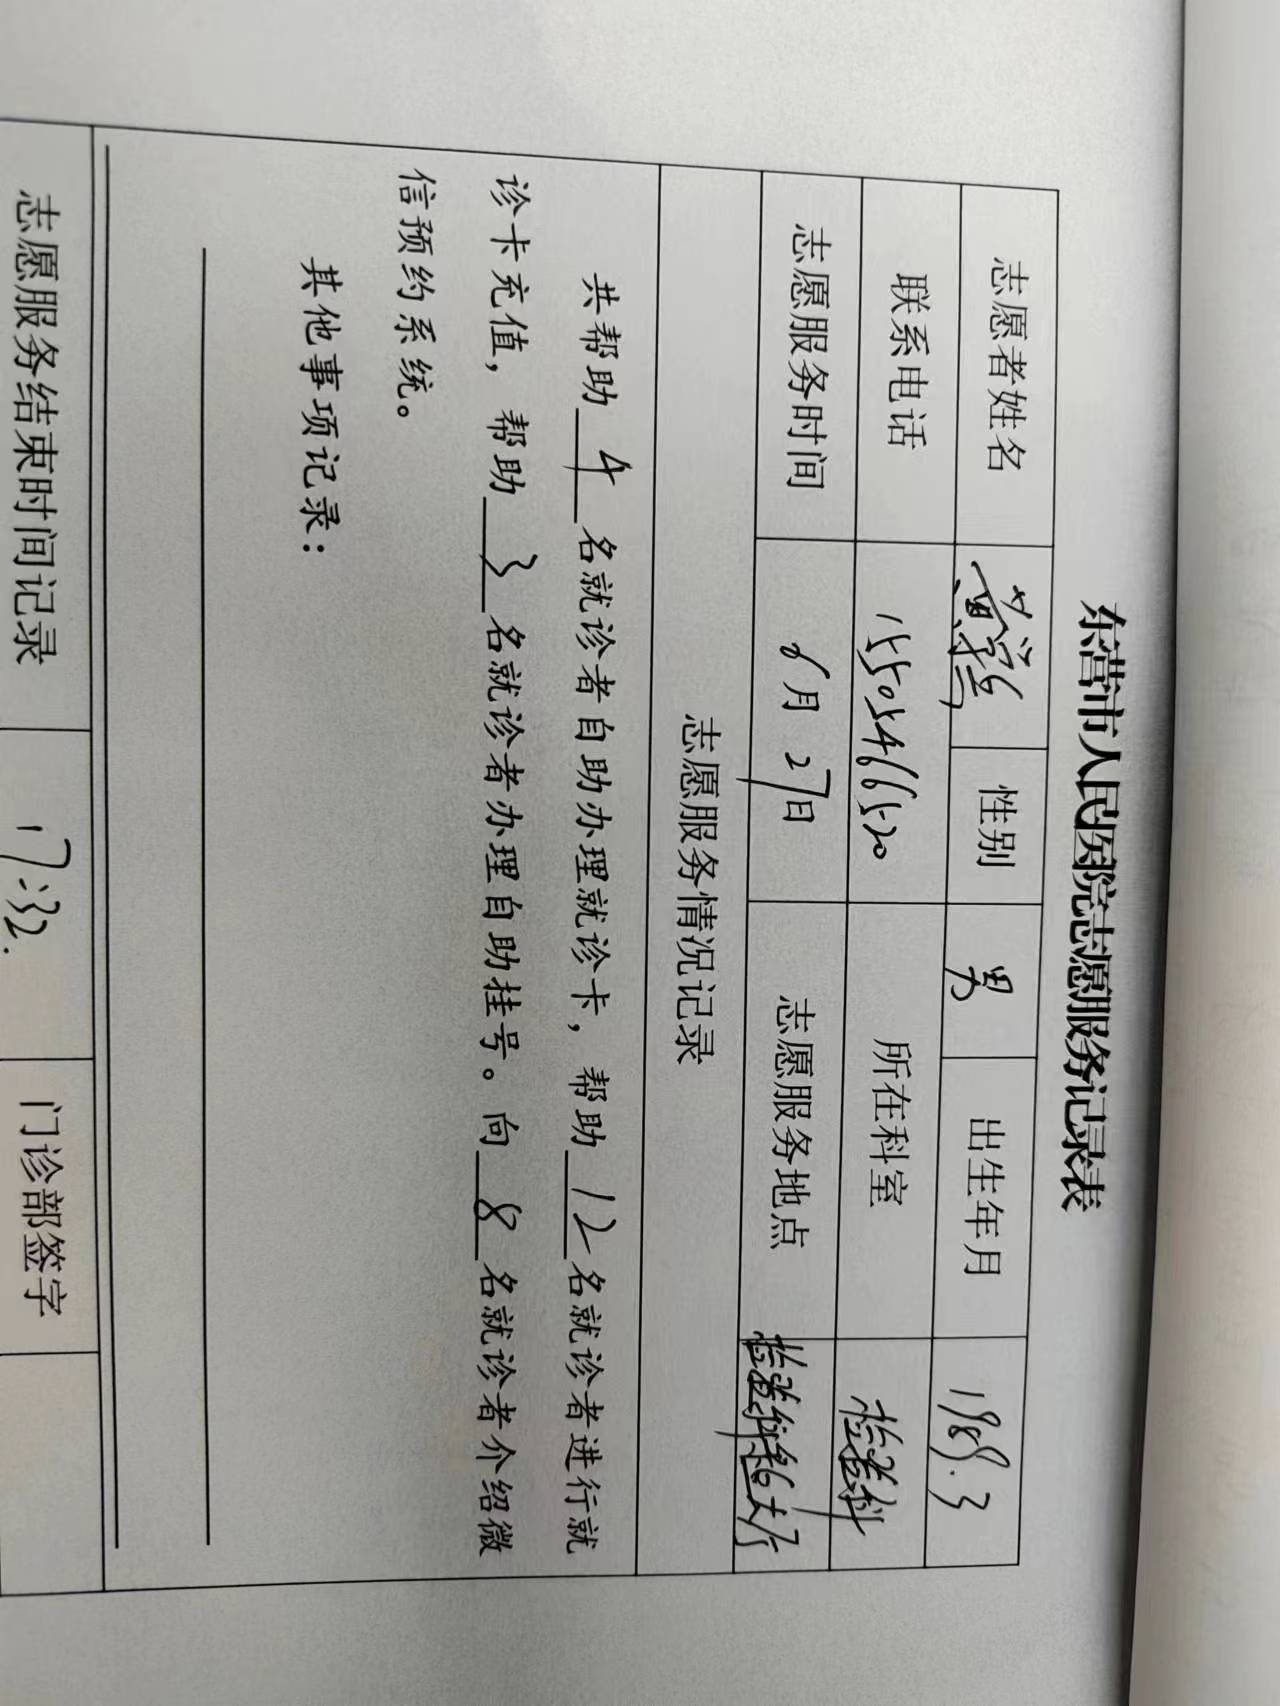 东营市人民医院志愿服务记录表
志愿者姓名 性别 男 出生年月 1989.3
联系电话 15505466520 所在科室 检验科
志愿服务时间 6月27日 志愿服务地点 大厅
志愿服务情况记录
共帮助 4 名就诊者自助办理就诊卡，帮助 12 名就诊者进行就
诊卡充值，帮助 3 名就诊者办理自助挂号。向 8 名就诊者介绍微
信预约系统。
其他事项记录：
志愿服务结束时间记录 17:32. 门诊部签字